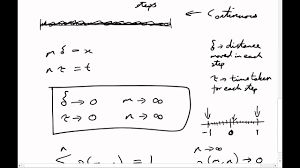 steps
← Continuous
nδ = x
nτ = t
δ → distance
moved in each
step
τ → time taken
for each step
δ → 0 n → ∞
τ → 0 n → ∞
-1 0 1
n